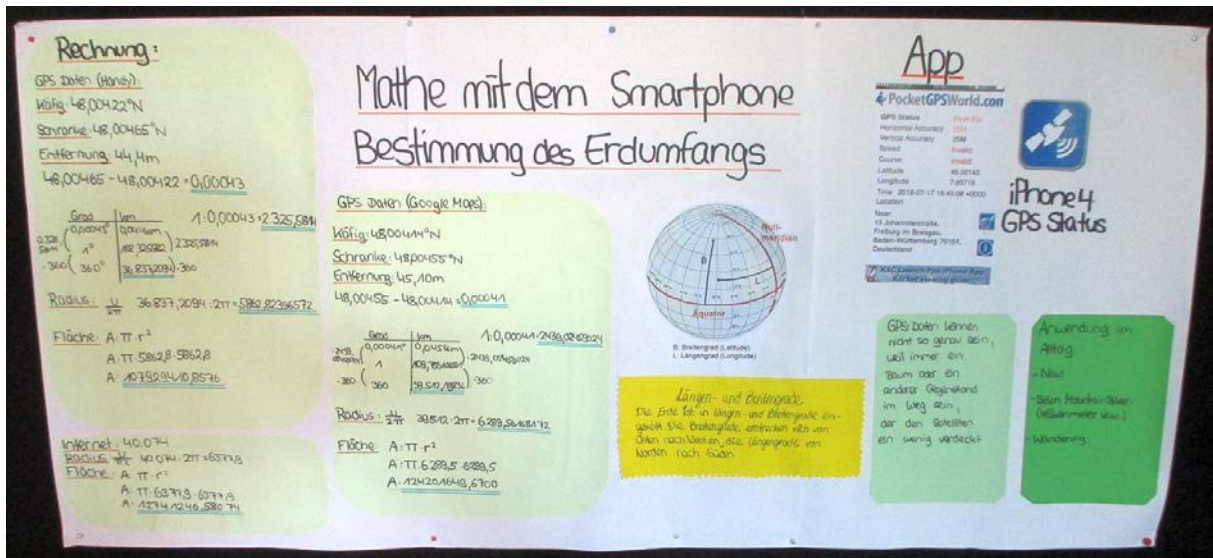 Rechnung:
GPS Daten (Handy):
Käfig: 48,00422°N
Schranke: 48,00465°N
Entfernung: 44,4m
48,00465 - 48,00422 = 0,00043
Grad km
1:0,00043 = 2.325,5814
1°
·360 360° 36.837,2094 ·360
Radius: U/2π 36.837,2094 : 2π = 5862,82396572
Fläche: A: π · r²
A: π · 5862,8 · 5862,8
A: 107929410,8576
Internet: 40.074
40.074 : 2π = 6377,9
Fläche: A: π · r²
A: π · 6377,9 · 6377,9
A: 127141246,58074
Mathe mit dem Smartphone
Bestimmung des Erdumfangs
GPS Daten (Google Maps):
Käfig: 48,00414°N
Schranke: 48,00455°N
Entfernung: 45,10m
48,00455 - 48,00414 = 0,00041
Grad km
1:0,00041 = 2439,02439024
1
·360 360 ·360
Radius: U/2π 39.512 : 2π = 6.289,
Fläche: A: π · r²
A: π · 6.289,5 · 6289,5
Null-
meridian
B
L
Äquator
B: Breitengrad (Latitude)
L: Längengrad (Longitude)
Längen- und Breitengrade
Die Erde ist in Längen- und Breitengrade ein-
geteilt. Die Breitengrade erstrecken sich von
Osten nach Westen, die Längengrade von
Norden nach Süden.
App
PocketGPSWorld.com
GPS Status
Horizontal Accuracy
Vertical Accuracy 25M
Speed Invalid
Course Invalid
Latitude 48.00145
Longitude
Time
Location
Near:
13 Johanniterstraße,
Freiburg im Breisgau,
Baden-Württemberg 79104,
Deutschland
iPhone4
GPS Status
GPS Daten können
nicht so genau sein,
weil immer ein
Baum oder ein
anderer Gegenstand
im Weg sein,
der den Satelliten
ein wenig verdeckt
Anwendung im
Alltag
- Navi
- Beim Mountainbiken
- Wanderung